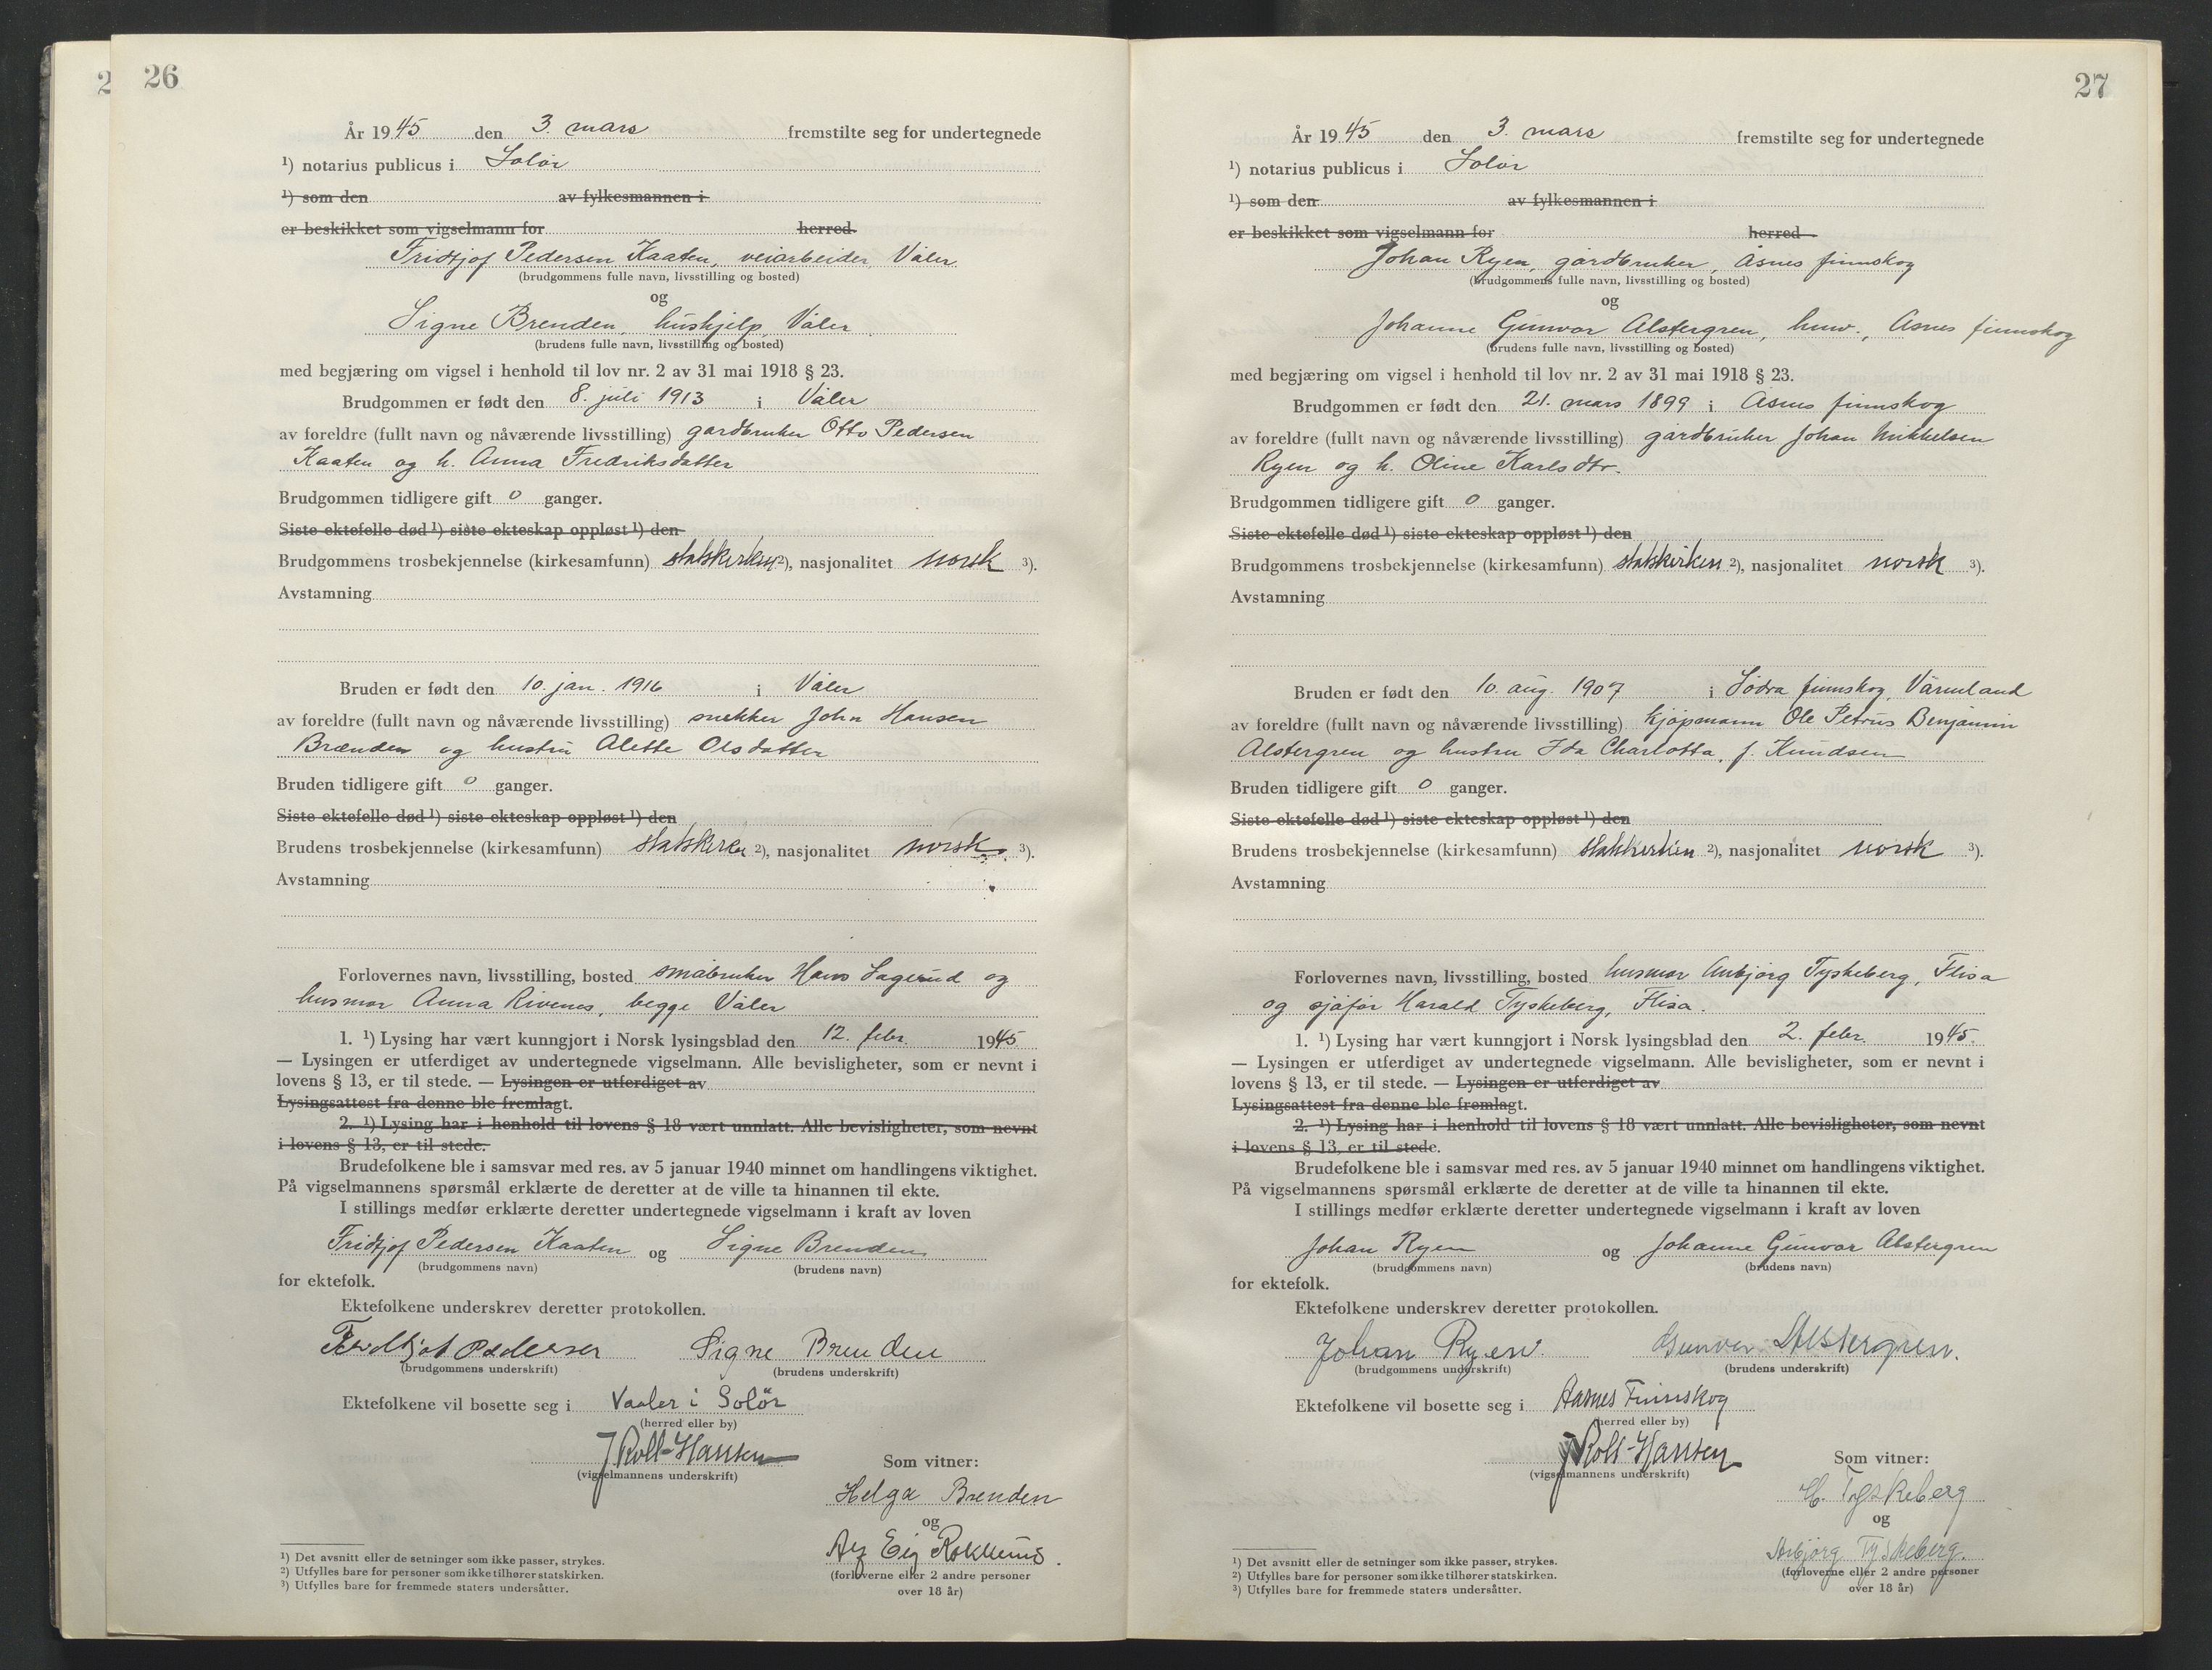 26
År 1945 den 3. mars fremstilte seg for undertegnede
¹) notarius publicus i Solør
¹) som den av fylkesmannen i
er beskikket som vigselmann for herred.
Fridtjof Pedersen Kaaten, veiarbeider, Våler
(brudgommens fulle navn, livsstilling og bosted)
og
Signe Brenden, hushjelp, Våler
(brudens fulle navn, livsstilling og bosted)
med begjæring om vigsel i henhold til lov nr. 2 av 31 mai 1918 § 23.
Brudgommen er født den 8. juli 1913 i Våler
av foreldre (fullt navn og nåværende livsstilling) gardbruker Otto Pedersen
Kaaten og h. Anna Fredriksdatter
Brudgommen tidligere gift 0 ganger.
Siste ektefelle død ¹) siste ekteskap oppløst ¹) den
Brudgommens trosbekjennelse (kirkesamfunn) statskirken ²), nasjonalitet norsk ³).
Avstamning
Bruden er født den 10. jan. 1916 i Våler
av foreldre (fullt navn og nåværende livsstilling) snekker John Hansen
Brænden og hustru Alette Olsdatter
Bruden tidligere gift 0 ganger.
Siste ektefelle død ¹) siste ekteskap oppløst ¹) den
Brudens trosbekjennelse (kirkesamfunn) statskirken ²), nasjonalitet norsk ³).
Avstamning
Forlovernes navn, livsstilling, bosted småbruker Hans Lagerud og
husmor Anna Rivenes, begge Våler
1. ¹) Lysing har vært kunngjort i Norsk lysingsblad den 12. febr. 1945
— Lysingen er utferdiget av undertegnede vigselmann. Alle bevisligheter, som er nevnt i
lovens § 13, er til stede. — Lysingen er utferdiget av
Lysingsattest fra denne ble fremlagt.
2. ¹) Lysing har i henhold til lovens § 18 vært unnlatt. Alle bevisligheter, som nevnt
i lovens § 13, er til stede.
Brudefolkene ble i samsvar med res. av 5 januar 1940 minnet om handlingens viktighet.
På vigselmannens spørsmål erklærte de deretter at de ville ta hinannen til ekte.
I stillings medfør erklærte deretter undertegnede vigselmann i kraft av loven
Fridtjof Pedersen Kaaten og Signe Brenden
(brudgommens navn) (brudens navn)
for ektefolk.
Ektefolkene underskrev deretter protokollen.
Pedersen Signe Brenden
(brudgommens underskrift) (brudens underskrift)
Ektefolkene vil bosette seg i Vaaler i Solör
(herred eller by)
J Roll-Hansen
(vigselmannens underskrift)
Som vitner:
Helga Brenden
og
(forloverne eller 2 andre personer
over 18 år)
¹) Det avsnitt eller de setninger som ikke passer, strykes.
²) Utfylles bare for personer som ikke tilhører statskirken.
³) Utfylles bare for fremmede staters undersåtter.
27
År 1945 den 3. mars fremstilte seg for undertegnede
¹) notarius publicus i Solør
¹) som den av fylkesmannen i
er beskikket som vigselmann for herred.
Johan Ryen, gårdbruker, Åsnes finnskog
(brudgommens fulle navn, livsstilling og bosted)
og
Johanne Gunvor Alstergren, husv., Åsnes finnskog
(brudens fulle navn, livsstilling og bosted)
med begjæring om vigsel i henhold til lov nr. 2 av 31 mai 1918 § 23.
Brudgommen er født den 21. mars 1899 i Åsnes finnskog
av foreldre (fullt navn og nåværende livsstilling) gårdbruker Johan Mikkelsen
Ryen og h. Oline Karlsdtr.
Brudgommen tidligere gift 0 ganger.
Siste ektefelle død ¹) siste ekteskap oppløst ¹) den
Brudgommens trosbekjennelse (kirkesamfunn) statskirken ²), nasjonalitet norsk ³).
Avstamning
Bruden er født den 10. aug. 1907 i Södra finnskog, Värmland
av foreldre (fullt navn og nåværende livsstilling) kjøpmann Ole Petrus Benjamin
Alstergren og hustru Ida Charlotta, f. Knudsen
Bruden tidligere gift 0 ganger.
Siste ektefelle død ¹) siste ekteskap oppløst ¹) den
Brudens trosbekjennelse (kirkesamfunn) statskirken ²), nasjonalitet norsk ³).
Avstamning
Forlovernes navn, livsstilling, bosted husmor Anbjørg Tyskeberg, Flisa
og sjåfør Harald Tyskeberg, Flisa.
1. ¹) Lysing har vært kunngjort i Norsk lysingsblad den 2. febr. 1945.
— Lysingen er utferdiget av undertegnede vigselmann. Alle bevisligheter, som er nevnt i
lovens § 13, er til stede. — Lysingen er utferdiget av
Lysingsattest fra denne ble fremlagt.
2. ¹) Lysing har i henhold til lovens § 18 vært unnlatt. Alle bevisligheter, som nevnt
i lovens § 13, er til stede.
Brudefolkene ble i samsvar med res. av 5 januar 1940 minnet om handlingens viktighet.
På vigselmannens spørsmål erklærte de deretter at de ville ta hinannen til ekte.
I stillings medfør erklærte deretter undertegnede vigselmann i kraft av loven
Johan Ryen og Johanne Gunvor Alstergren
(brudgommens navn) (brudens navn)
for ektefolk.
Ektefolkene underskrev deretter protokollen.
Johan Ryen. Gunvor Alstergren.
(brudgommens underskrift) (brudens underskrift)
Ektefolkene vil bosette seg i Aasnes Finnskog
(herred eller by)
J Roll-Hansen
(vigselmannens underskrift)
Som vitner:
H. Tyskeberg
og
Anbjørg Tyskeberg.
(forloverne eller 2 andre personer
over 18 år)
¹) Det avsnitt eller de setninger som ikke passer, strykes.
²) Utfylles bare for personer som ikke tilhører statskirken.
³) Utfylles bare for fremmede staters undersåtter.